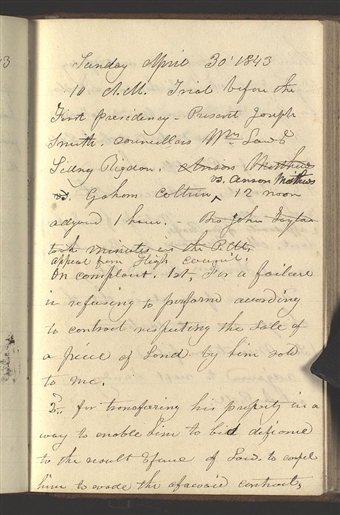 Sunday April 30 1843
10 A.M. Trial before the
First Presidency - Present Joseph
Smith. councillors Wm Law &
Sidney Rigdon. Anson Matthews
vs. anson Mathews
vs. Graham Coltrin 12 noon
adjourd 1 hour. - Mr John Taylor
took minutes in the P.M.
appeal from High council.
On complaint. 1st, For a failure
in refusing to perform according
to contract respecting the sale of
a piece of Land by him sold
to me.
2d. for transferring his property in a
way to enable him to bid defiance
to the result & force of Law. to compel
him to evade the aforesaid contract,